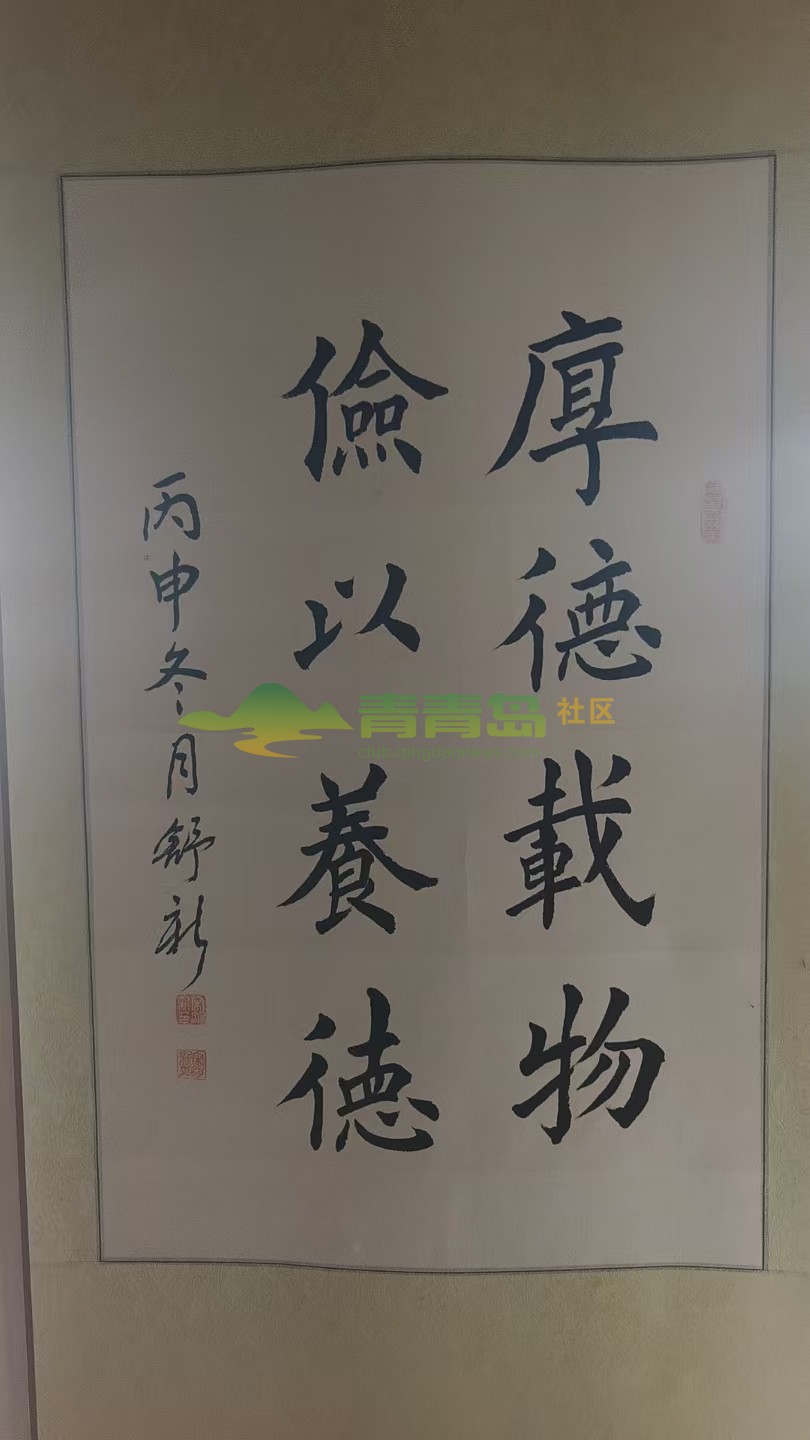 厚德載物
儉以養德
丙申冬月舒新
青青岛社区